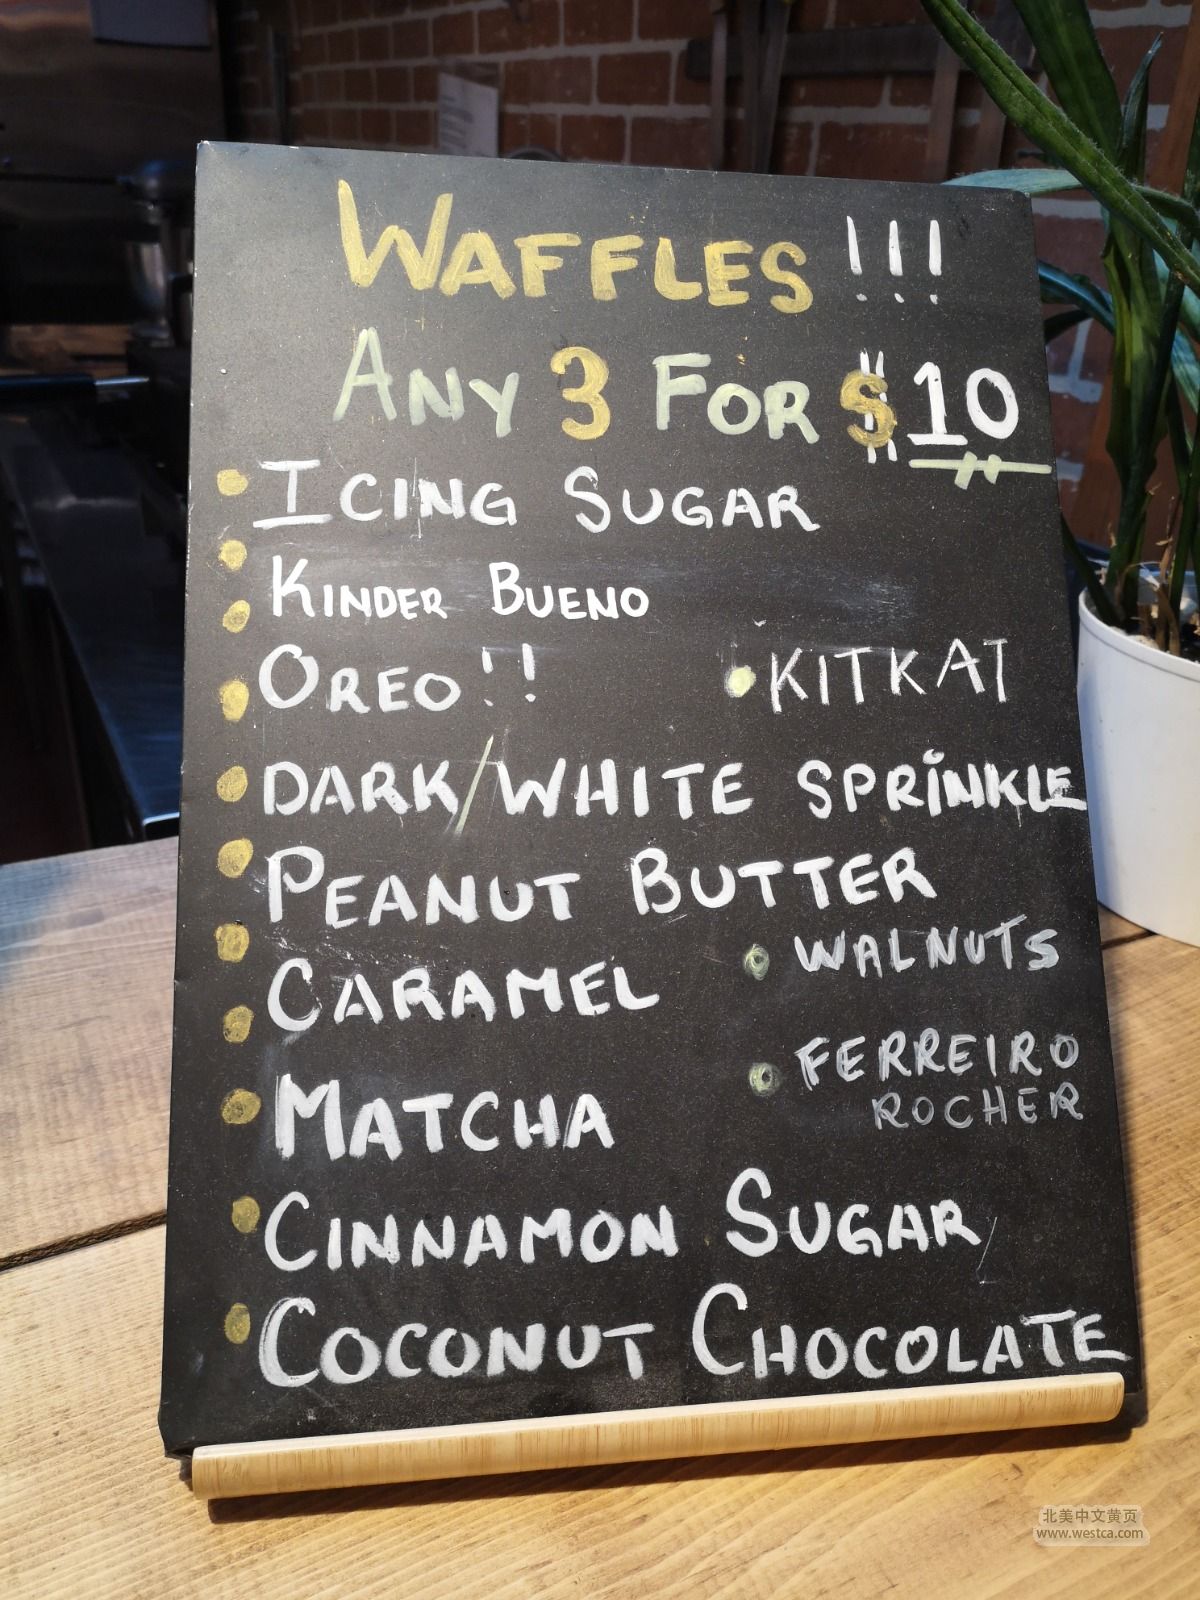 WAFFLES !!!
ANY 3 FOR $10
ICING SUGAR
KINDER BUENO
OREO!!
KITKAT
DARK/WHITE SPRINKLE
PEANUT BUTTER
WALNUTS
CARAMEL
FERREIRO
ROCHER
MATCHA
CINNAMON SUGAR
COCONUT CHOCOLATE
北美中文黄页
www.westca.com